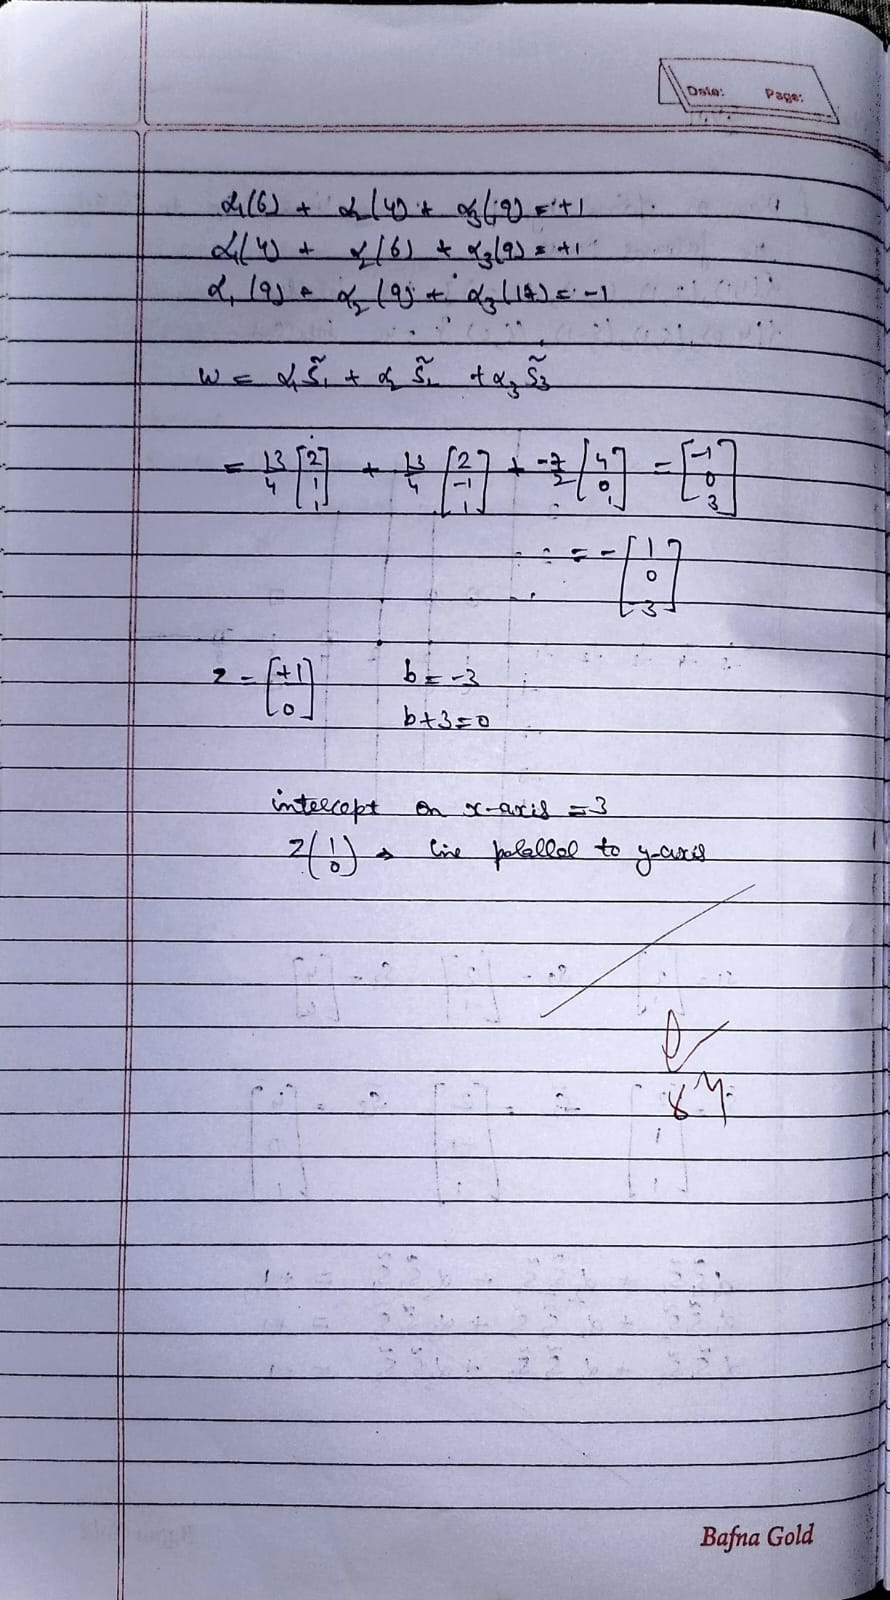 Date: Page:
α₁(6) + α₂(4) + α₃(9) = +1
α₁(4) + α₂(6) + α₃(9) = +1
α₁(9) + α₂(9) + α₃(17) = -1
w = α₁S̃₁ + α₂S̃₂ + α₃S̃₃
= 13/4 [2 1 1] + 13/4 [2 -1 1] + -7/2 [4 0 1] = [-1 0 3]
= -[1 0 3]
z = [+1 0] b = -3
b+3=0
intercept on x-axis = 3
z(1 0) → line parallel to y-axis
Bafna Gold